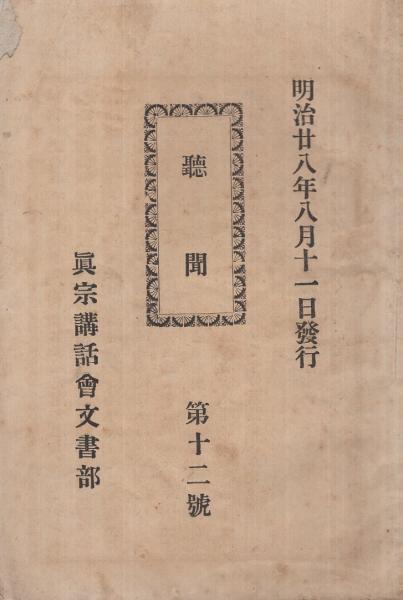 明治廿八年八月十一日發行
聽聞
第十二號
眞宗講話會文書部